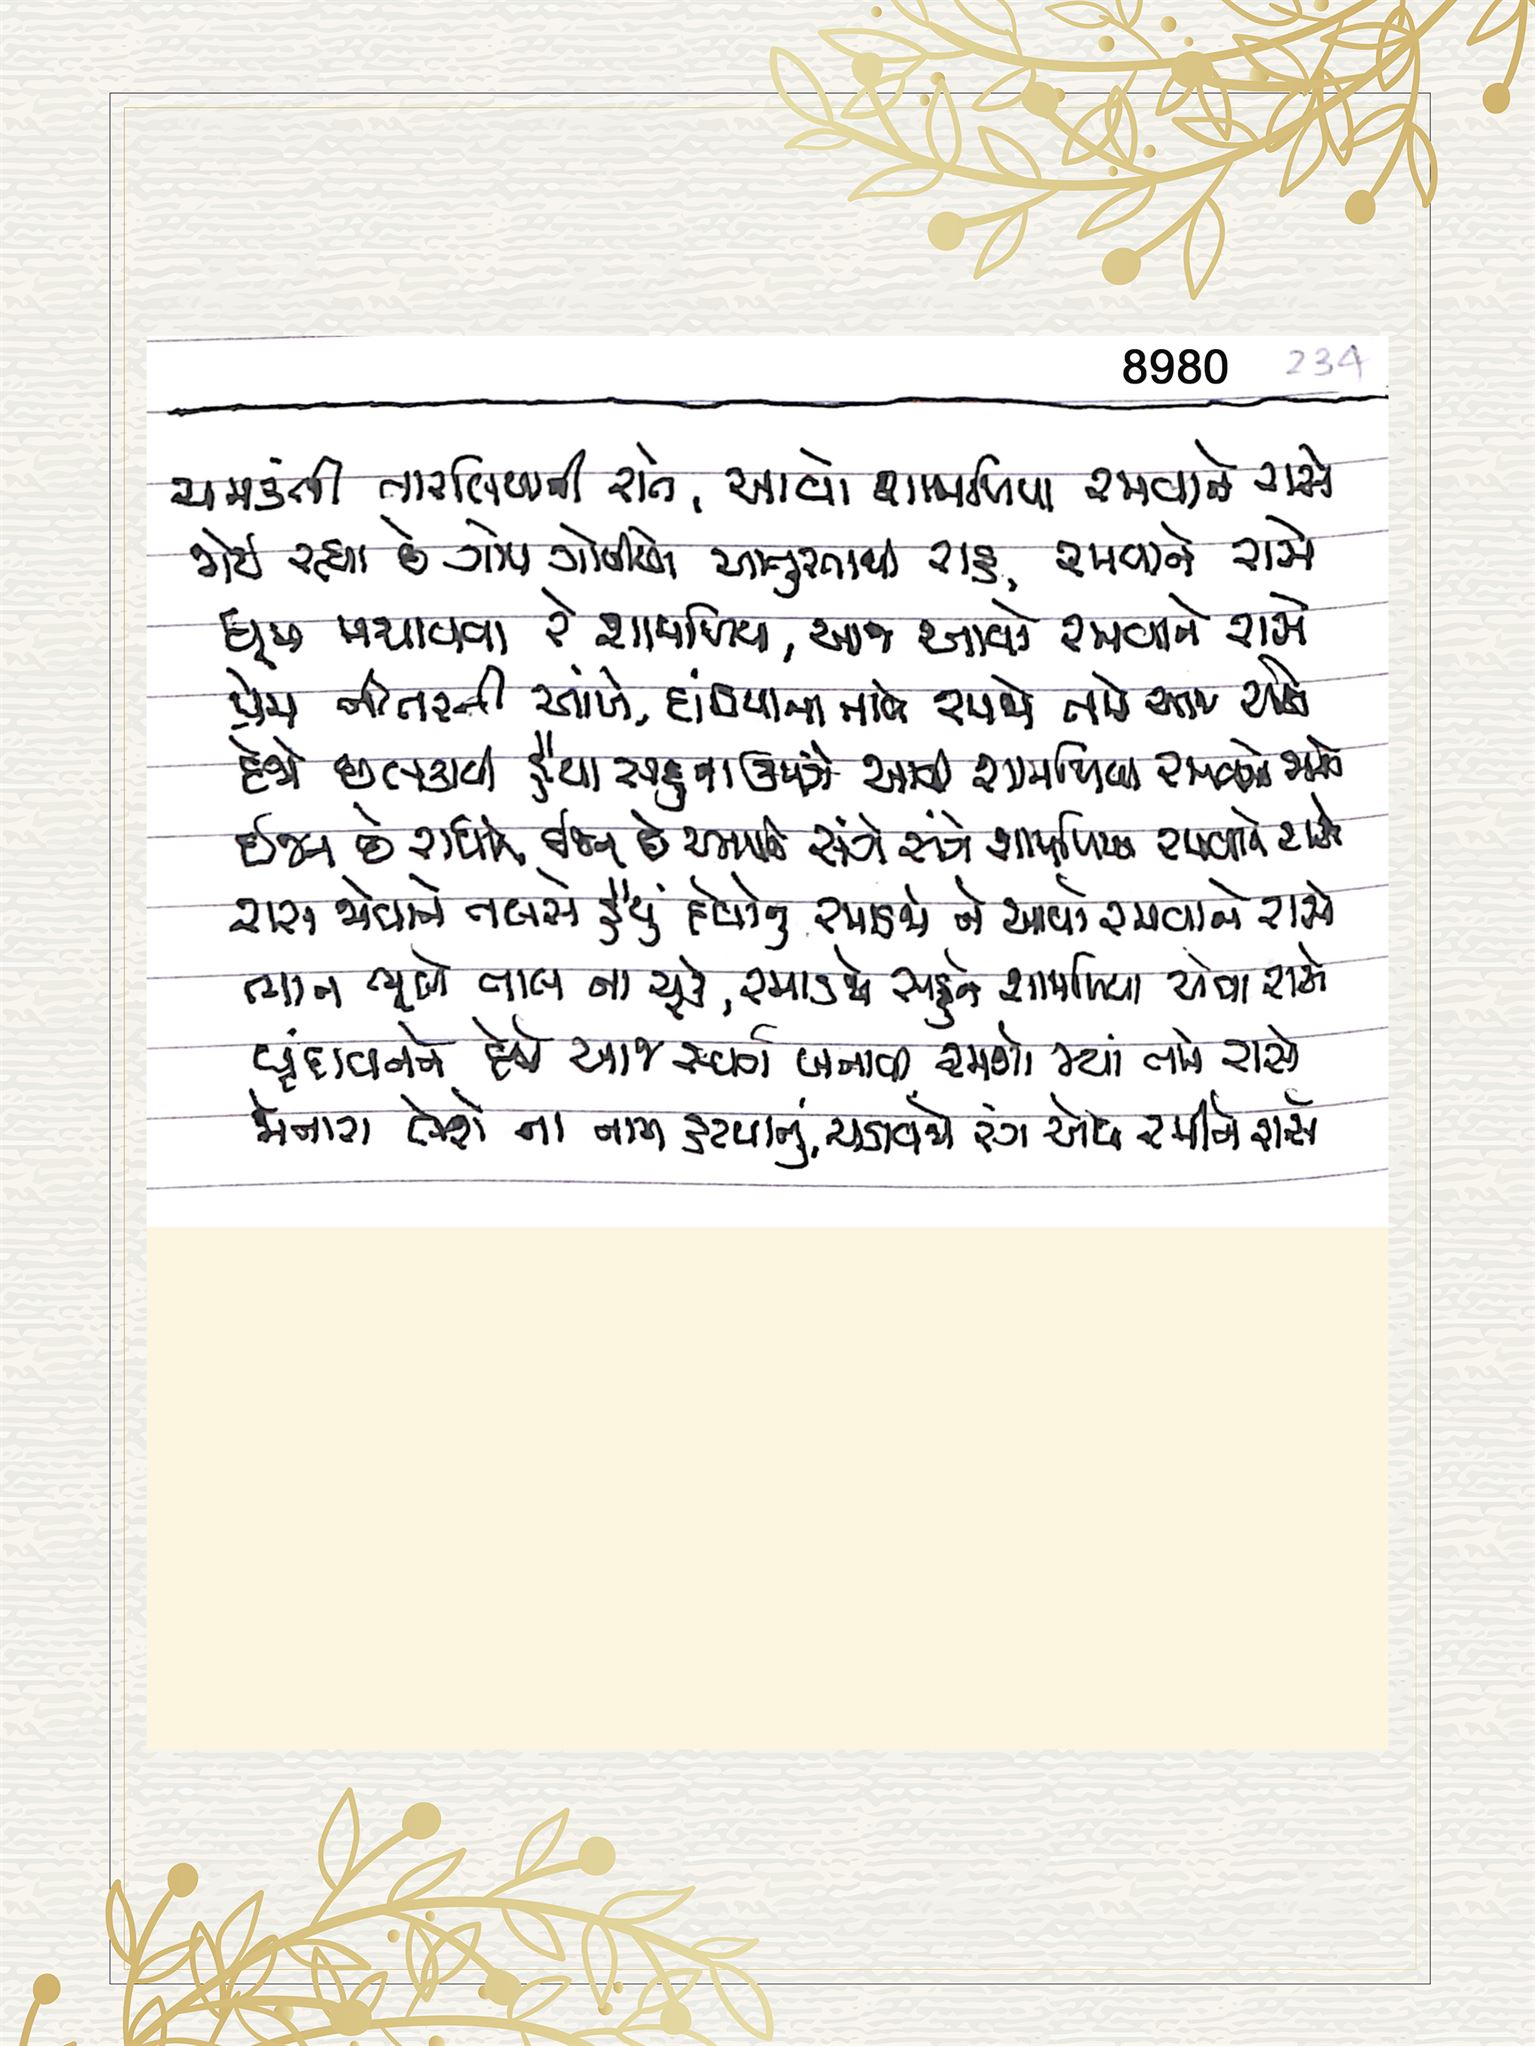 8980 234
ચમકંતી તારલિયાની રાત, આવો શામળિયા રમવાને રાસે
જોઈ રહ્યા છે ગોપ ગોપીઓ આતુરતાથી રાહ, રમવાને રાસે
ધૂમ મચાવવા રે શામળિયા, આજ આવો રમવાને રાસે
પ્રેમ નીતરતી આંખે, દાંડિયાના તાલે રમજો તમે આજ રાસે
દેજો છલકાવી હૈયા સહુના ઉમંગે આવી શામળિયા રમવાને રાસે
ઇજન છે રાધાને, ઇજન છે અમારે સંગે સંગે શામળિયા રમવાને રાસે
રાસ જોવાને તલસે હૈયું દેવોનું રમાડજો ને આવો રમવાને રાસે
ભાન ભૂલે તાલ ના ચૂકે, રમાડજો સહુને શામળિયા એવા રાસે
વૃંદાવનને દેજો આજ સ્વર્ગ બનાવી રમશો જ્યાં તમે રાસે
જોનારા હૈશે ના નામ હટવાનું, ચડાવજો રંગ એવો રમીને રાસે